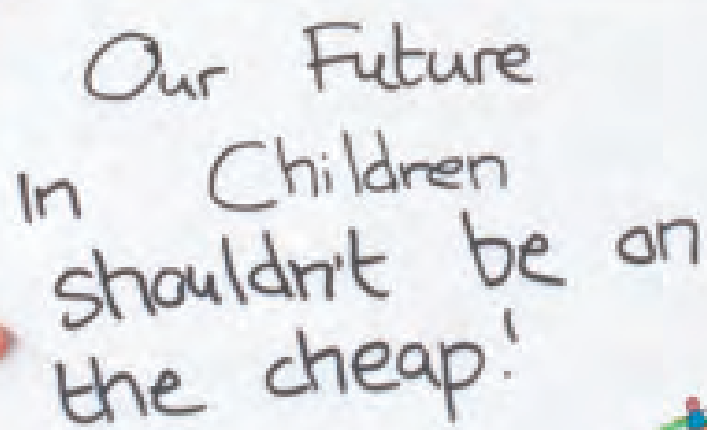 Our Future
In Children
shouldn't be on
the cheap!